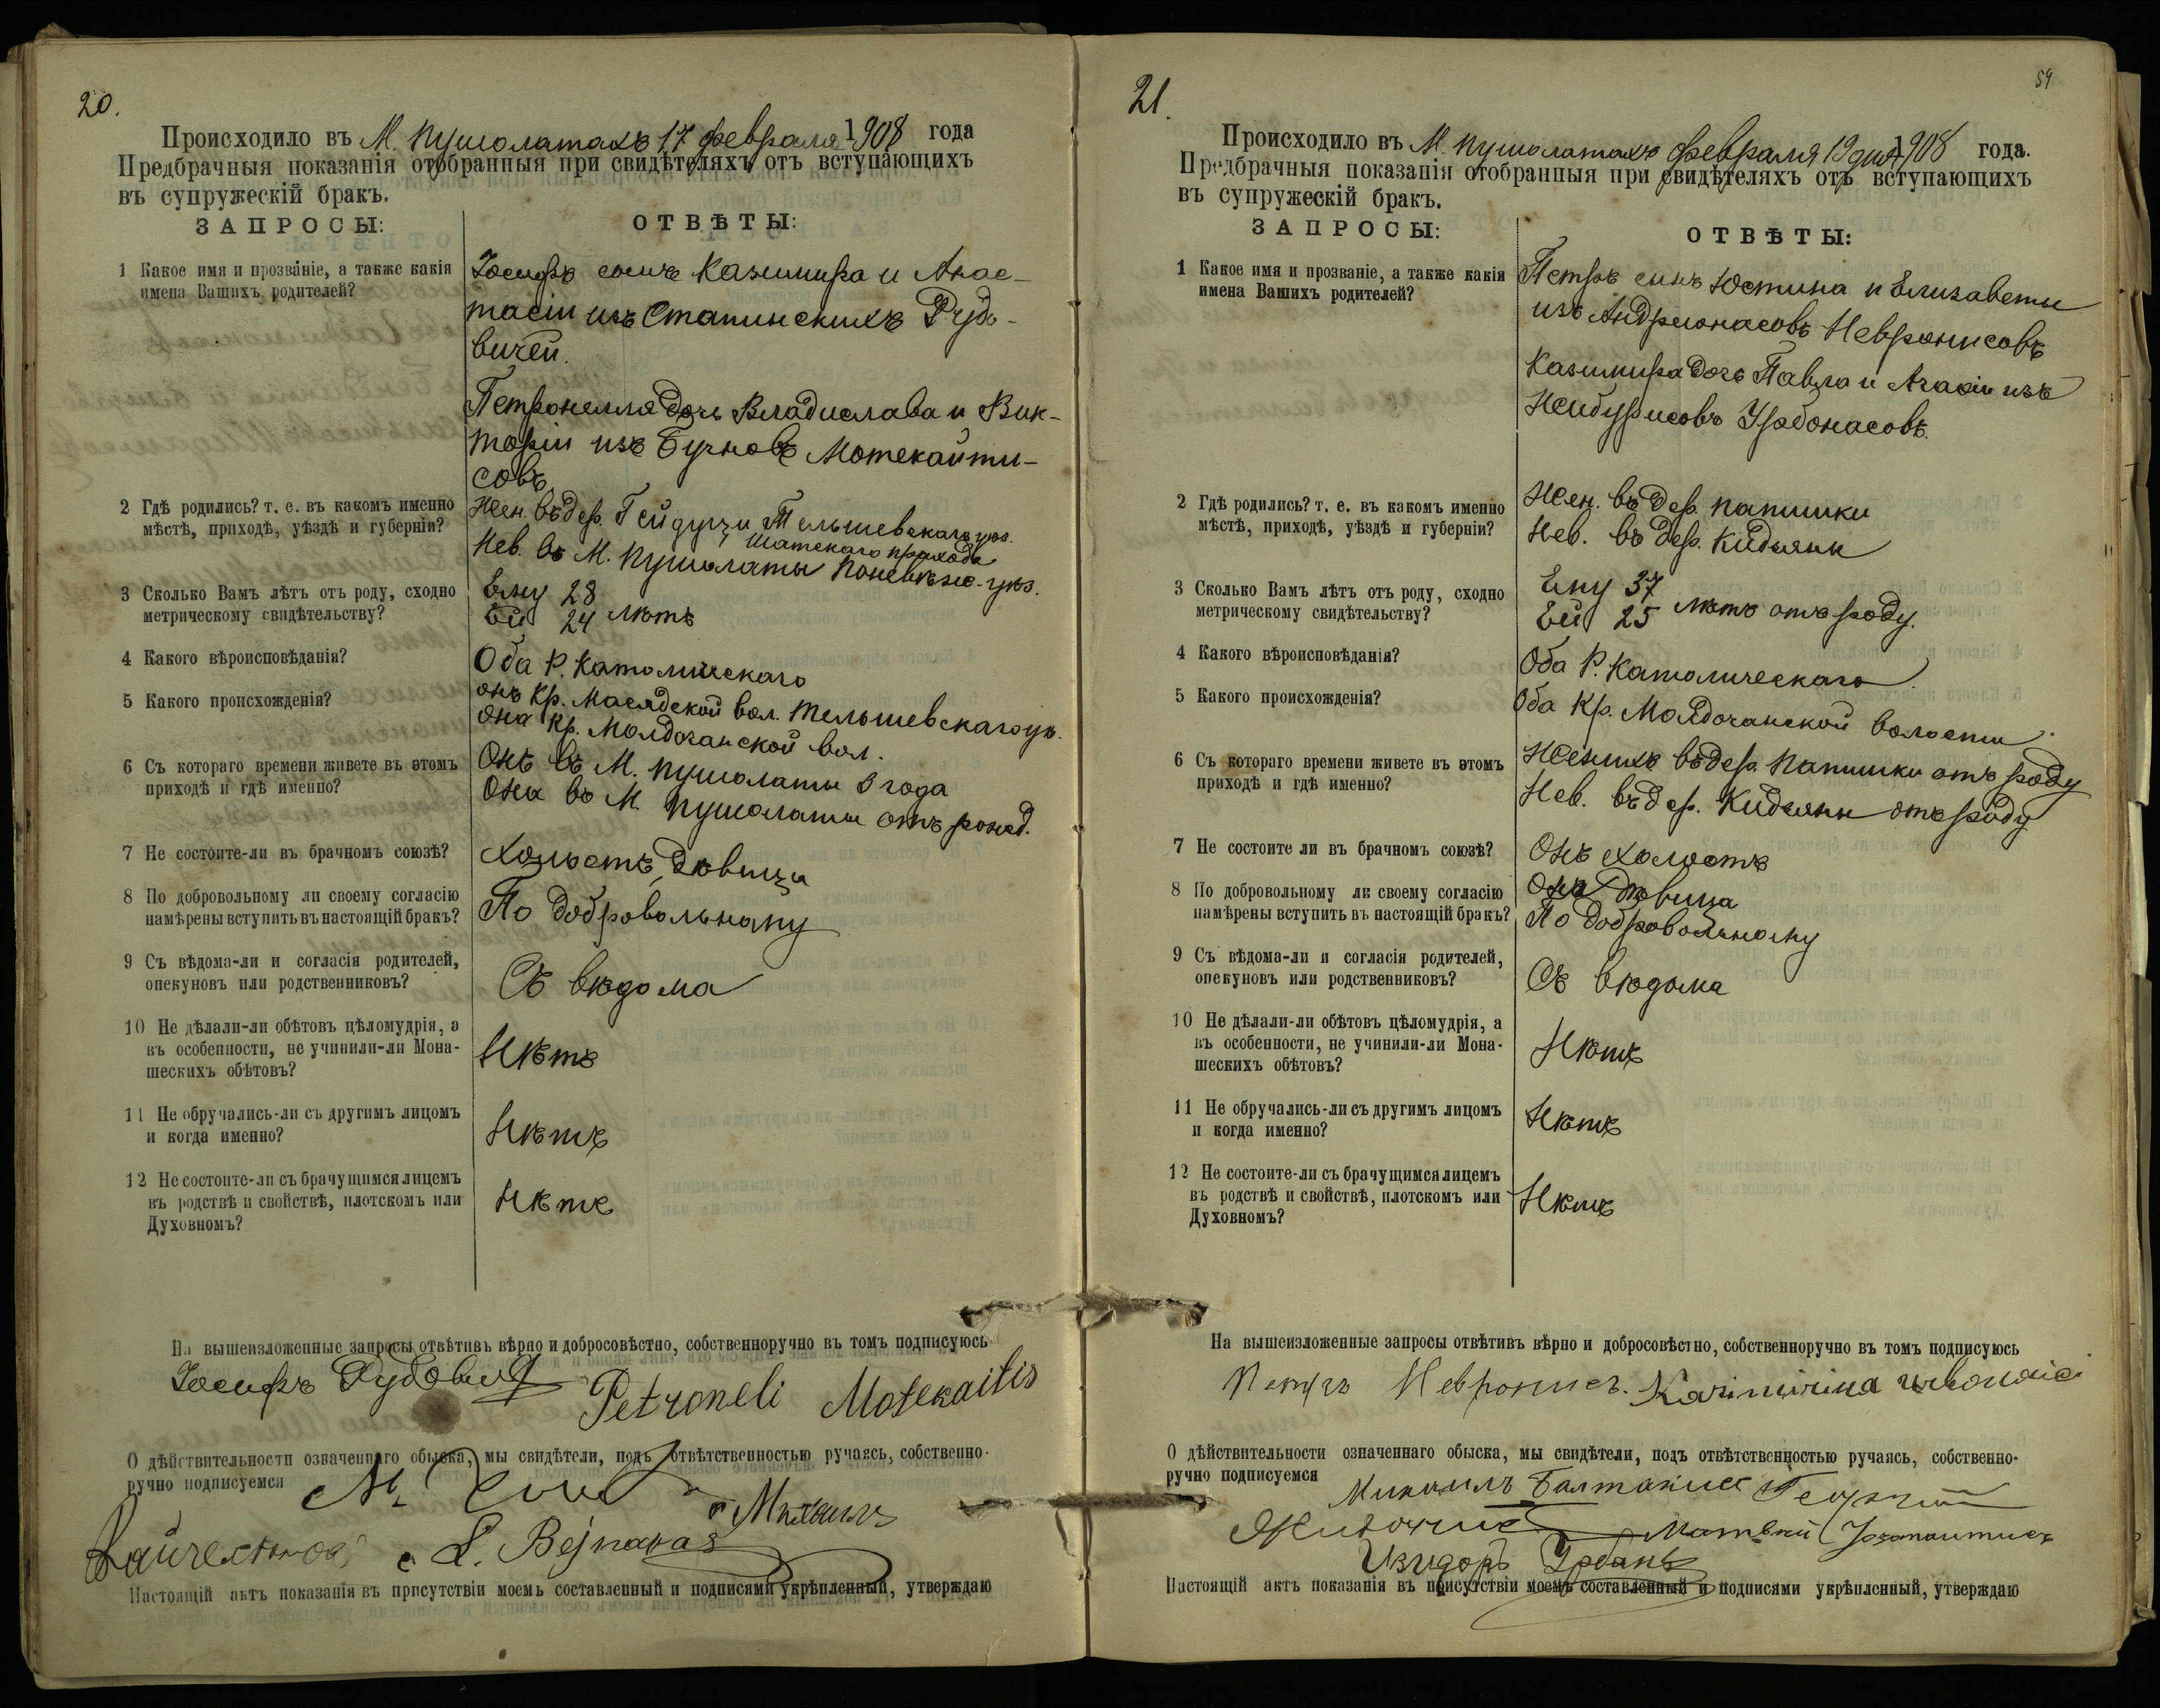 20.
Происходило въ М. Пушолатахъ 17 февраля 1908 года
Предбрачныя показанія отобранныя при свидѣтеляхъ отъ вступающихъ
въ супружескій бракъ.
ЗАПРОСЫ:
ОТВѢТЫ:
1 Какое имя и прозваніе, а также какія
имена Вашихъ родителей?
Іосифъ сынъ Казимира и Анас-
тасіи изъ Стапинскихъ Рудо-
вичей.
Петронелля дочь Владислава и Вик-
торіи изъ Бучновъ Мотекайти-
совъ
2 Гдѣ родились? т. е. въ какомъ именно
мѣстѣ, приходѣ, уѣздѣ и губерніи?
Жен. въ дер. Тельшевскаго уѣз.
Шатскаго прихода
Нев. въ М. Пушолаты Поневѣж. уѣз.
3 Сколько Вамъ лѣтъ отъ роду, сходно
метрическому свидѣтельству?
Ему 28
Ей 24 лѣтъ
4 Какого вѣроисповѣданія?
Оба Р. Католическаго
5 Какого происхожденія?
онъ Кр. Масядской вол. Тельшевскаго у.
она Кр. Молдочанской вол.
6 Съ котораго времени живете въ этомъ
приходѣ и гдѣ именно?
Онъ въ М. Пушолаты 3 года
Она въ М. Пушолаты отъ рожд.
7 Не состоите-ли въ брачномъ союзѣ?
Холостъ, Дѣвица
8 По добровольному ли своему согласію
намѣрены вступить въ настоящій бракъ?
По добровольному
9 Съ вѣдома-ли и согласія родителей,
опекуновъ или родственниковъ?
Съ вѣдома
10 Не дѣлали-ли обѣтовъ цѣломудрія, а
въ особенности, не учинили-ли Мона-
шескихъ обѣтовъ?
Нѣтъ
11 Не обручались-ли съ другимъ лицомъ
и когда именно?
Нѣтъ
12 Не состоите-ли съ брачущимся лицемъ
въ родствѣ и свойствѣ, плотскомъ или
Духовномъ?
Нѣтъ
На вышеизложенные запросы отвѣтивъ вѣрно и добросовѣстно, собственноручно въ томъ подписуюсь
Іосифъ Рудовичъ Petroneli Motekaitis
О дѣйствительности означеннаго обыска, мы свидѣтели, подъ отвѣтственностью ручаясь, собственно-
ручно подписуемся
Михаилъ
L. Bejnaras
Настоящій актъ показанія въ присутствіи моемъ составленный и подписями укрѣпленный, утверждаю
21.
59
Происходило въ М. Пушолатахъ февраля 19 дня 1908 года.
Предбрачныя показанія отобранныя при свидѣтеляхъ отъ вступающихъ
въ супружескій бракъ.
ЗАПРОСЫ:
ОТВѢТЫ:
1 Какое имя и прозваніе, а также какія
имена Вашихъ родителей?
Петръ сынъ Юстина и Елизаветы
изъ Андріонасовъ Невронисовъ
Казимира дочь Павла и Агасіи изъ
Нейбурисовъ Урбонасовъ.
2 Гдѣ родились? т. е. въ какомъ именно
мѣстѣ, приходѣ, уѣздѣ и губерніи?
Жен. въ дер. Папишки
Нев. въ дер. Кидзяны
3 Сколько Вамъ лѣтъ отъ роду, сходно
метрическому свидѣтельству?
Ему 37
Ей 25 лѣтъ отъ роду.
4 Какого вѣроисповѣданія?
Оба Р. Католическаго
5 Какого происхожденія?
Оба Кр. Молдочанской волости.
6 Съ котораго времени живете въ этомъ
приходѣ и гдѣ именно?
Женихъ въ дер. Папишки отъ роду
Нев. въ дер. Кидзяны отъ роду
7 Не состоите ли въ брачномъ союзѣ?
Онъ холостъ
Она Дѣвица
8 По добровольному ли своему согласію
намѣрены вступить въ настоящій бракъ?
По добровольному
9 Съ вѣдома-ли и согласія родителей,
опекуновъ или родственниковъ?
Съ вѣдома
10 Не дѣлали-ли обѣтовъ цѣломудрія, а
въ особенности, не учинили-ли Мона-
шескихъ обѣтовъ?
Нѣтъ
11 Не обручались-ли съ другимъ лицомъ
и когда именно?
Нѣтъ
12 Не состоите-ли съ брачущимся лицемъ
въ родствѣ и свойствѣ, плотскомъ или
Духовномъ?
Нѣтъ
На вышеизложенные запросы отвѣтивъ вѣрно и добросовѣстно, собственноручно въ томъ подписуюсь
Петръ Невронисъ. Kazimirina
О дѣйствительности означеннаго обыска, мы свидѣтели, подъ отвѣтственностью ручаясь, собственно-
ручно подписуемся
Михаилъ Балтакисъ Георгій
Матвѣй
Изидоръ Урбанъ
Настоящій актъ показанія въ присутствіи моемъ составленный и подписями укрѣпленный, утверждаю